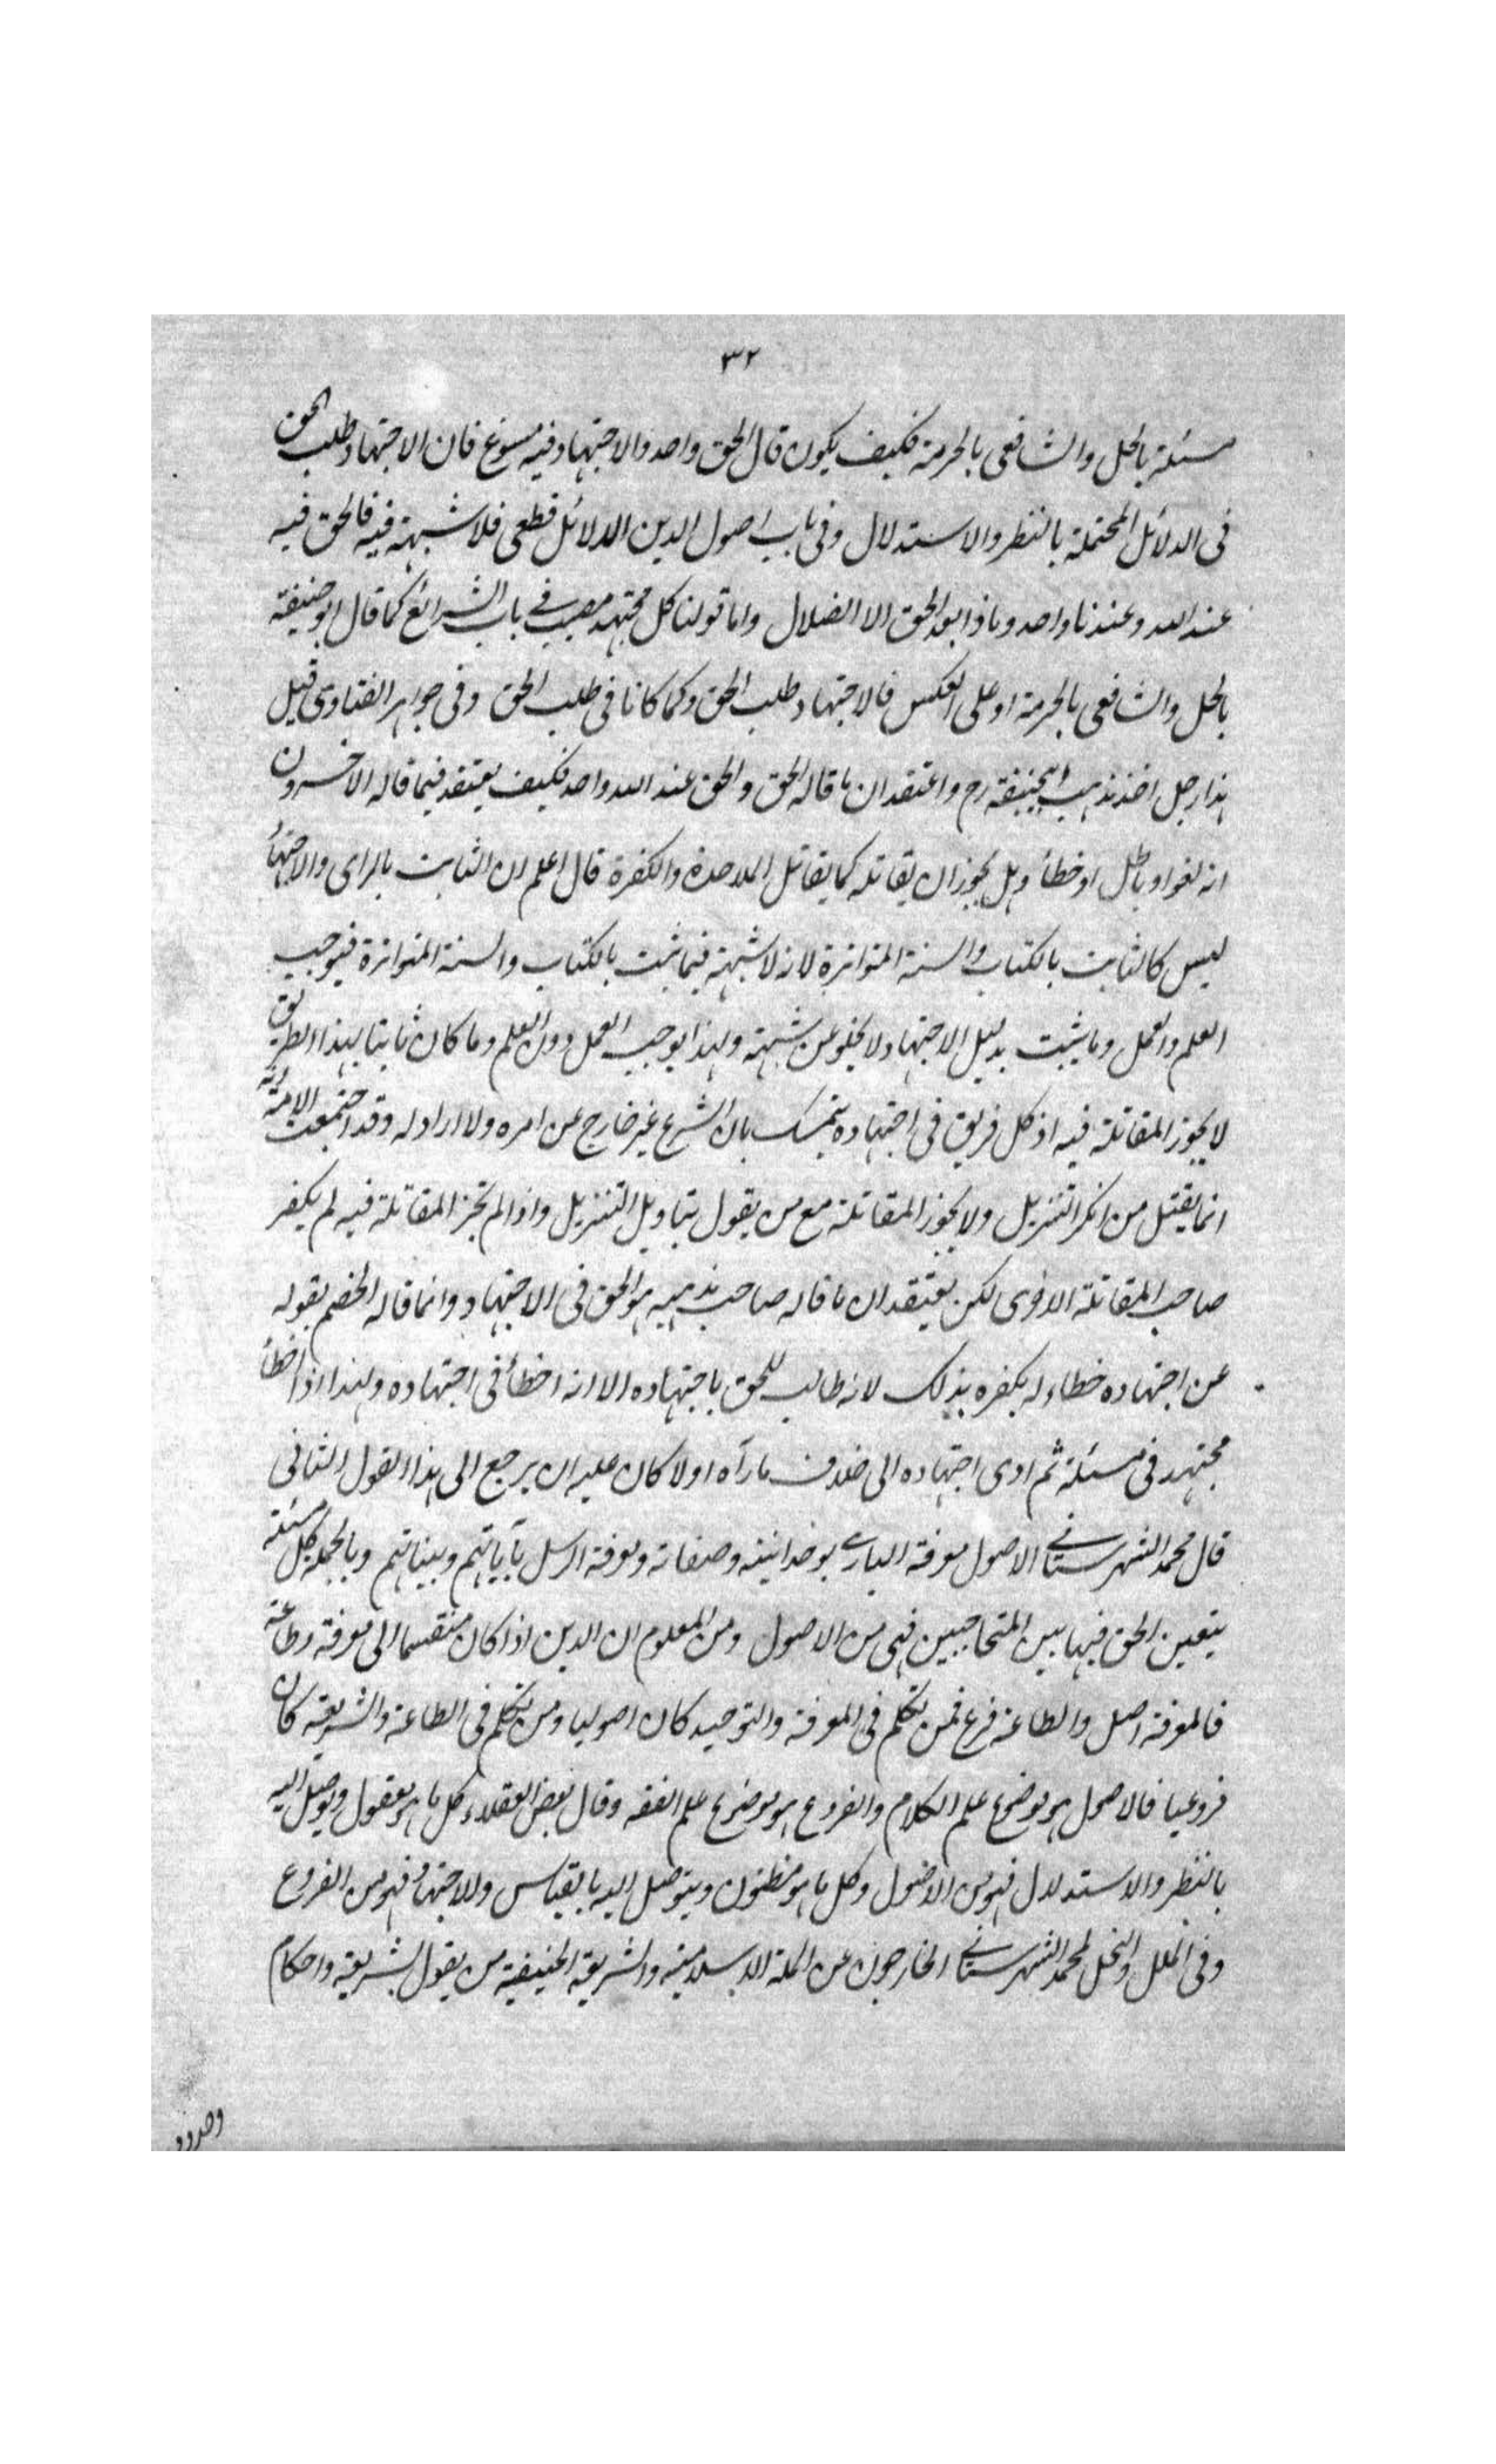 ٣٢
مسئلة بالحل والشافعى بالحرمة فكيف يكون قال الحق واحد والاجتهاد فيه مسوغ فان الاجتهاد طلب الحق
فى الدلائل المحتملة بالنظر والاستدلال وفى باب اصول الدين الدلائل قطعى فلا شبهة فيه فالحق فيه
عند الله وعندنا واحد وماذا بعد الحق الا الضلال واما قولنا كل مجتهد مصيب فے باب الشرائع كما قال ابو حنيفة
بالحل والشافعى بالحرمة او على العكس فالاجتهاد طلب الحق وكما كانا فى طلب الحق وفى جواهر الفتاوى قيل
هذا رجل اخذ مذهب ابيحنيفة رح واعتقد ان ما قاله الحق والحق عند الله واحد فكيف يعتقد فيما قاله الاخرون
انه لغو او باطل او خطأ وهل يجوز ان يقاتله كما يقاتل الملاحدة والكفرة قال اعلم ان الثابت بالراى والاجتهاد
ليس كالثابت بالكتاب والسنة المتواترة لانه لا شبهة فيما ثبت بالكتاب والسنة المتواترة فيوجب
العلم والعمل وما يثبت بدليل الاجتهاد لا يخلو عن شبهة ولهذا يوجب العمل دون العلم وما كان ثابتا بهذا الطريق
لا يجوز المقاتلة فيه اذ كل فريق فى اجتهاده يتمسك بان الشرع غير خارج عن امره ولا اراد له وقد اجتمعت الامة انه
انما يقتل من انكر التنزيل ولا يجوز المقاتلة مع من يقول بتاويل التنزيل واذا لم تجز المقاتلة فيه لم يكفر
صاحب المقاتلة الاخرى لكن يعتقد ان ما قاله صاحب مذهبه هو الحق فى الاجتهاد وانما قاله الخصم بقوله
عن اجتهاده خطاء لم يكفره بذلك لانه طالب للحق باجتهاده الا انه اخطأ فى اجتهاده ولهذا اذا اخطأ
مجتهد فى مسئلة ثم ادى اجتهاده الى خلاف ما رآه اولا كان عليه ان يرجع الى هذا القول الثانى
قال محمد الشهرستانے الاصول معرفة البارے بوحدانيته وصفاته ومعرفة الرسل بآياتهم وبيناتهم وبالجملة كل مسئلة
يتعين الحق فيها بين المتخاصمين فهى من الاصول ومن المعلوم ان الدين اذا كان منقسما الى معرفة وطاعة
فالمعرفة اصل والطاعة فرع فمن تكلم فى المعرفة والتوحيد كان اصوليا ومن تكلم فى الطاعة والشريعة كان
فروعيا فالاصول هو موضوع علم الكلام والفروع هو موضوع علم الفقه وقال بعض العقلاء كل ما هو معقول ويتوصل اليه
بالنظر والاستدلال فهو من الاصول وكل ما هو مظنون ويتوصل اليه بالقياس والاجتهاد فهو من الفروع
وفى الملل والنحل لمحمد الشهرستانے الخارجون عن الملة الاسلامية والشريعة الحنيفية من يقول بشريعة واحكام
وحدود